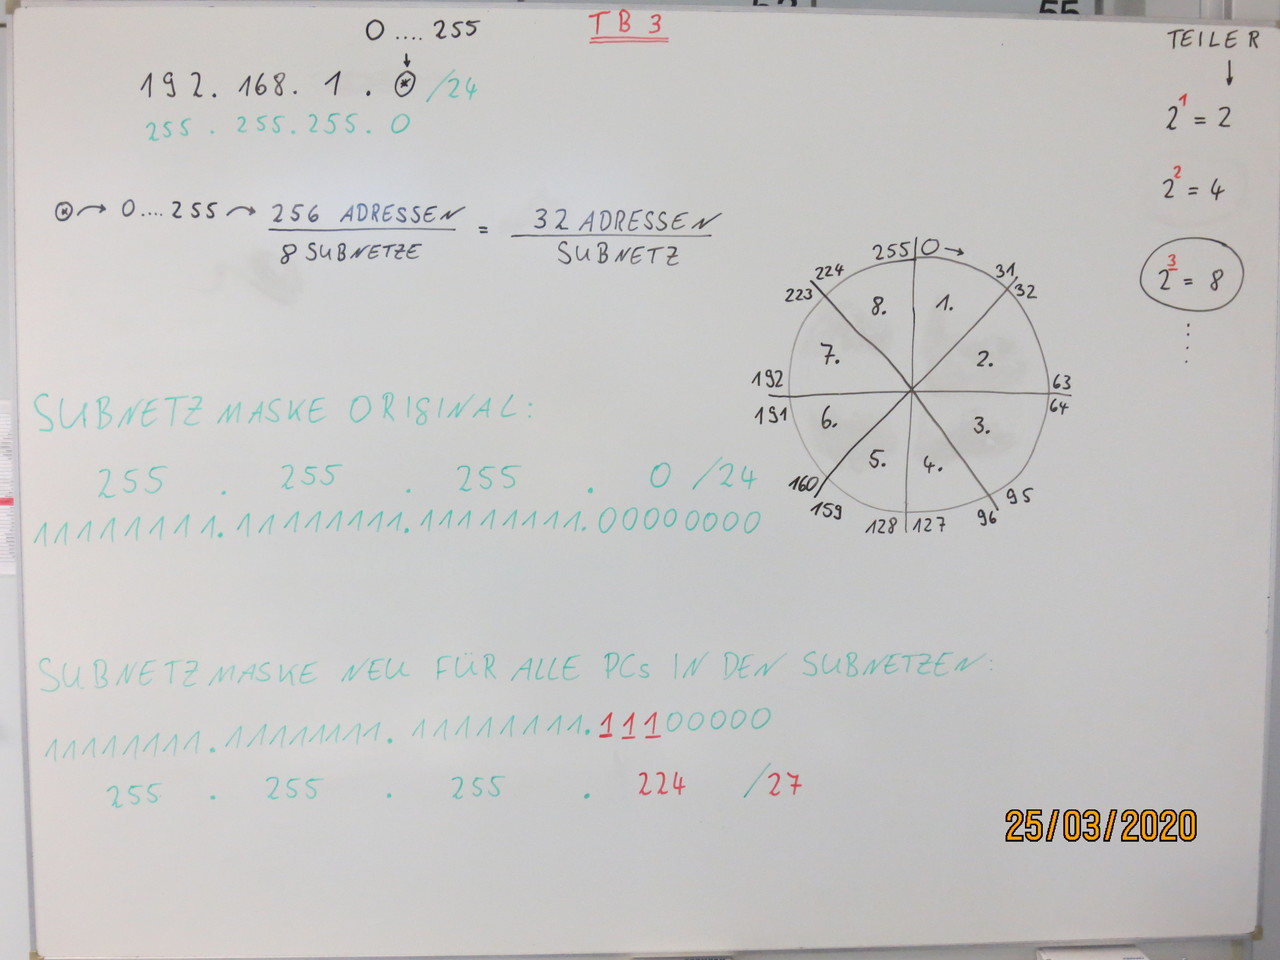 TB 3
0 .... 255
↓
192. 168. 1 . ⊛ /24
255 . 255. 255. 0
⊛→ 0.... 255 → 256 ADRESSEN / 8 SUBNETZE = 32 ADRESSEN / SUBNETZ
TEILER
↓
2¹ = 2
2² = 4
2³ = 8
255 | 0 →
224
223
31
32
8.
1.
7.
2.
192
191
63
64
6.
3.
5.
4.
160
159
95
96
128 | 127
SUBNETZMASKE ORIGINAL:
255 . 255 . 255 . 0 /24
11111111.11111111.11111111.00000000
SUBNETZMASKE NEU FÜR ALLE PCs IN DEN SUBNETZEN:
11111111.11111111.11111111.11100000
255 . 255 . 255 . 224 /27
25/03/2020